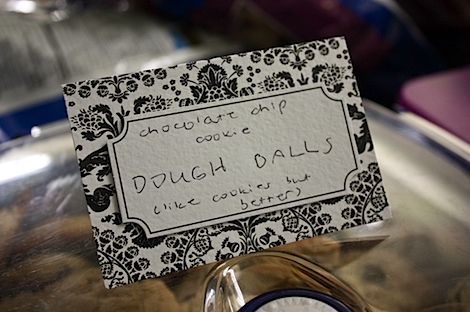 chocolate chip
cookie
DOUGH BALLS
(like cookies but
better)